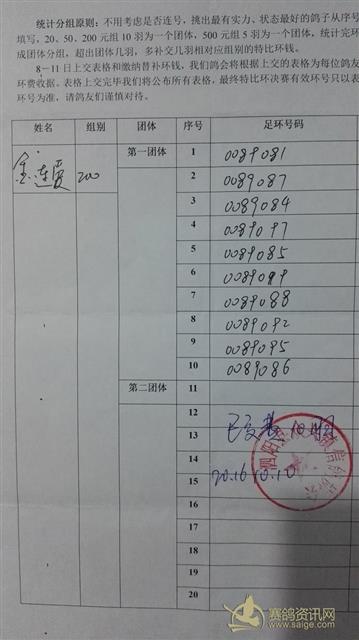 统计分组原则：不用考虑是否连号，挑出最有实力、状态最好的鸽子从序号
填写，20、50、200 元组 10 羽为一个团体，500 元组 5 羽为一个团体，统计完环
成团体分组，超出团体几羽，多补交几羽相对应组别的特比环钱。
8－11 日上交表格和缴纳替补环钱，我们鸽会将根据上交的表格为每位鸽友
环费收据。表格上交完毕我们将公布所有表格，最终特比环决赛有效环号只以表
环号为准，请鸽友们谨慎对待。
姓名 组别 团体 序号 足环号码
200 第一团体 1 0089081
2 0089087
3 0089084
4 0089097
5 0089085
6 0089099
7 0089088
8 0089092
9 0089095
10 0089086
第二团体 11
12
13 已交
14
15 2016.10.10
16
17
18
19
20
赛鸽资讯网
www.saige.com